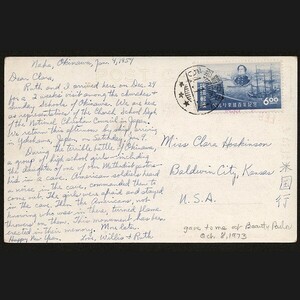 Naha, Okinawa, Jan 4, 1954
Dear Clara,
Ruth and I arrived here on Dec. 28
for a 2 weeks visit among the churches &
Sunday Schools of Okinawa. We are here
as representatives of the Church School Dept
of the National Christian Council in Japan.
We return this afternoon by ship arriving
in Yokohama, Japan on Saturday, Jan 9.
During the terrible battle of Okinawa,
a group of high school girls — including
the daughter of one of our Methodist
hid in a cave. American soldiers heard
a noise in the cave, commanded them to
come out. The girls were afraid and stayed
in the cave. Then the Americans, not
knowing who was in there, turned flame
throwers on them. This monument has been
erected in their memory. More later.
Happy New Year, Love, Willis & Ruth
6.00
Miss Clara Hoskinson
Baldwin City, Kansas
U.S.A.
米国行
gave to me at Beauty Parlor
Oct. 8, 1973